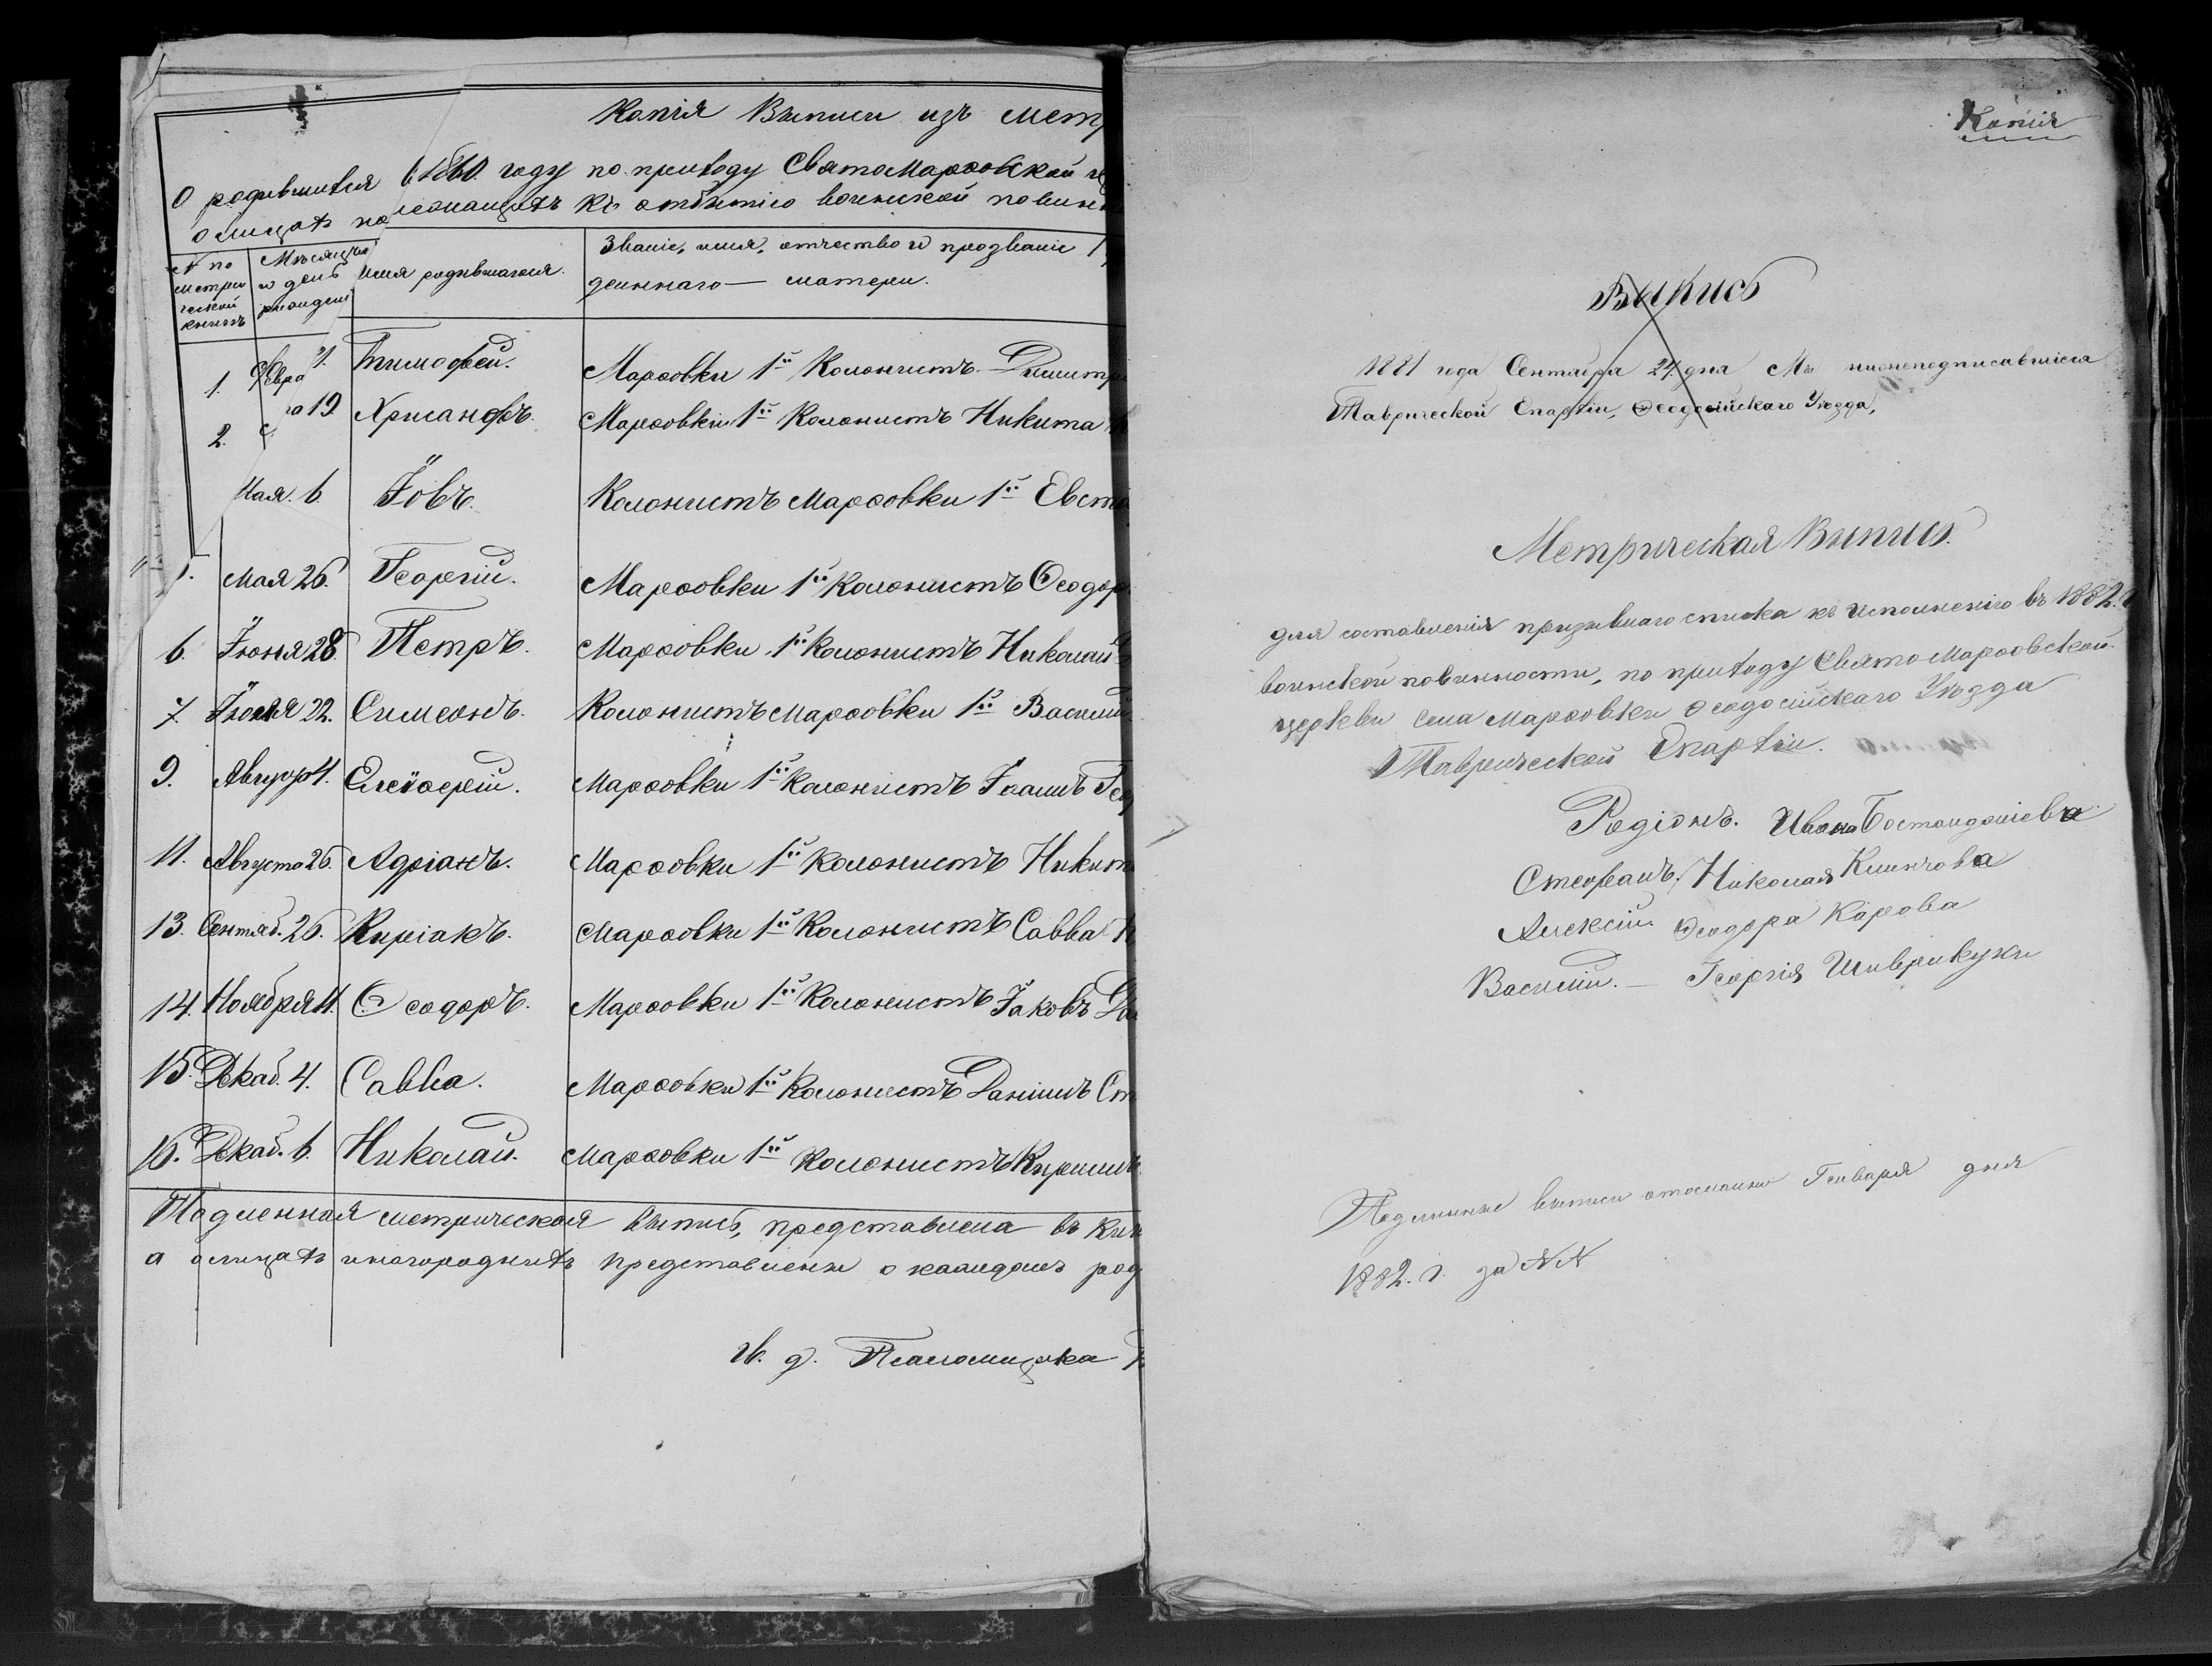 Копія Выписи изъ метр
О родившихся 1860 году по приходу СвятоМарѳовской
о лицахъ подлежащихъ къ отбытію воинской повин
№ по метрической книгѣ
Мѣсяцъ и день рожденія
Имя родившагося.
Званіе, имя, отчество и прозваніе
деннаго — матери.
1. Февра 21. Тимоѳей. Марѳовки 1й Колонистъ Димитр
2. 19 Хрисанфъ. Марѳовки 1й Колонистъ Никита
Мая. 6. Іовъ. Колонистъ Марѳовки 1й Евст
5. Мая 26. Георгій. Марѳовки 1й Колонистъ Ѳеодор
6. Іюня 28. Петръ. Марѳовки 1й Колонистъ Николай
7. Іюня 22. Симеонъ. Колонистъ Марѳовки 1й Василій
9. Август 4. Елеѵѳерій. Марѳовки 1й Колонистъ Іоаннъ Гео
11. Августа 26. Адріанъ. Марѳовки 1й Колонистъ Никит
13. Сентяб. 26. Киріакъ. Марѳовки 1й Колонистъ Савва
14. Ноября 11. Ѳеодоръ. Марѳовки 1й Колонистъ Іаковъ
15. Декаб. 4. Савва. Марѳовки 1й Колонистъ Даніилъ Ст
16. Декаб. 6. Николай. Марѳовки 1й Колонистъ Кириллъ
Подленная метрическая выпись, представлена въ
а о лицахъ иногороднихъ представлены о каждомъ род
И. д. Псаломщика
Копія
Выпись
1881 года Сентября 24 дня Мы нижеподписавшіеся
Таврической Епархіи, Ѳеодосійскаго Уѣзда,
Метрическая Выпись.
для составленія призывнаго списка къ исполненію въ 1882.
воинской повинности, по приходу СвятоМарѳовской
церкви села Марѳовки Ѳеодосійскаго Уѣзда
Таврической Епархіи.
Родіонъ. Ивана Бостанджіева
Стефанъ. Николая Климчова
Алексій. Ѳеодора Карова
Василій. — Георгія Шиврикузки
Подлинные выписи отосланы Генваря дня
1882. г. за №№